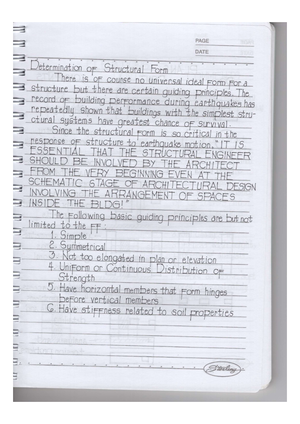 PAGE
DATE
Determination of Structural Form
There is of course no universal ideal form for a
structure but there are certain guiding principles. The
record of building performance during earthquakes has
repeatedly shown that buildings with the simplest stru-
ctural systems have greatest chance of survival
Since the structural form is so critical in the
response of structure to earthquake motion. "IT IS
ESSENTIAL THAT THE STRUCTURAL ENGINEER
SHOULD BE INVOLVED BY THE ARCHITECT
FROM THE VERY BEGINNING EVEN AT THE
SCHEMATIC STAGE OF ARCHITECTURAL DESIGN
INVOLVING THE ARRANGEMENT OF SPACES
INSIDE THE BLDG!"
The following basic guiding principles are but not
limited to the FF:
1. Simple
2. Symmetrical
3. Not too elongated in plan or elevation
4. Uniform or Continuous Distribution of
Strength
5. Have horizontal members that form hinges
before vertical members
6. Have stiffness related to soil properties
Sterling